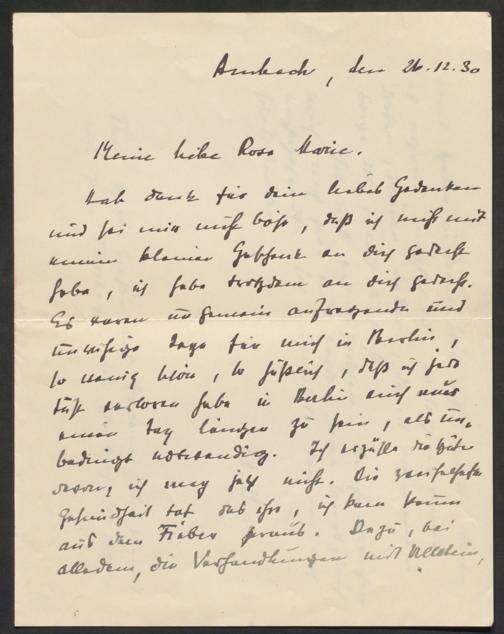 Ambach, den 26.12.30
Meine liebe Rosa Marie.
Hab dank für dein liebes Gedenken
und sei mir nicht böse, daß ich nicht mit
einem kleinen Geschenk an dich gedacht
habe, ich habe trotzdem an dich gedacht.
Es waren ungemein aufregende und
unruhige Tage für mich in Berlin,
so wenig schön, so häßlich, daß ich jede
Lust verloren habe in Berlin auch nur
einen Tag länger zu sein, als un-
bedingt notwendig. Ich erzähle dir später
davon, ich mag jetzt nicht. Die zweifelhafte
Gesundheit tat das ihre, ich kam kaum
aus dem Fieber heraus. Dazu, bei
alledem, die Verhandlungen mit Ullstein,